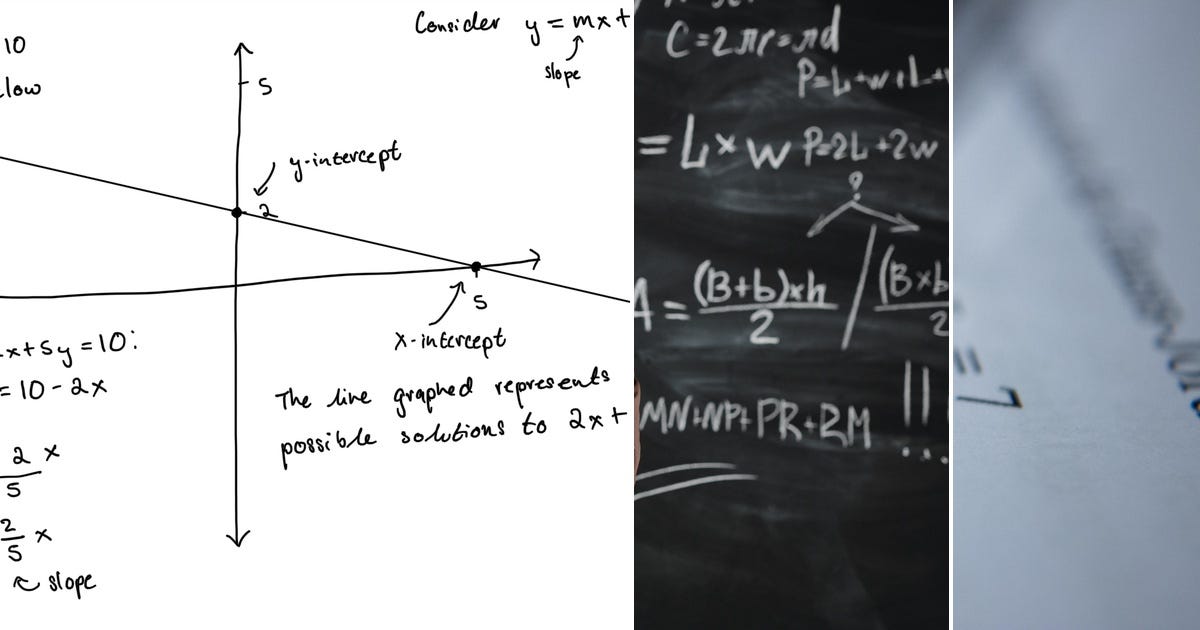 10
low
Consider y = mx+
slope
5
y-intercept
2
5
x-intercept
x+5y=10:
= 10 - 2x
2 x
5
2
5 x
slope
The line graphed represents
possible solutions to 2x+
C=2πr=πd
P=L+w+L+
= L×w P=2L+2w
?
A = (B+b)×h / (B×b
2 2
MN+NP+PR+RM !!